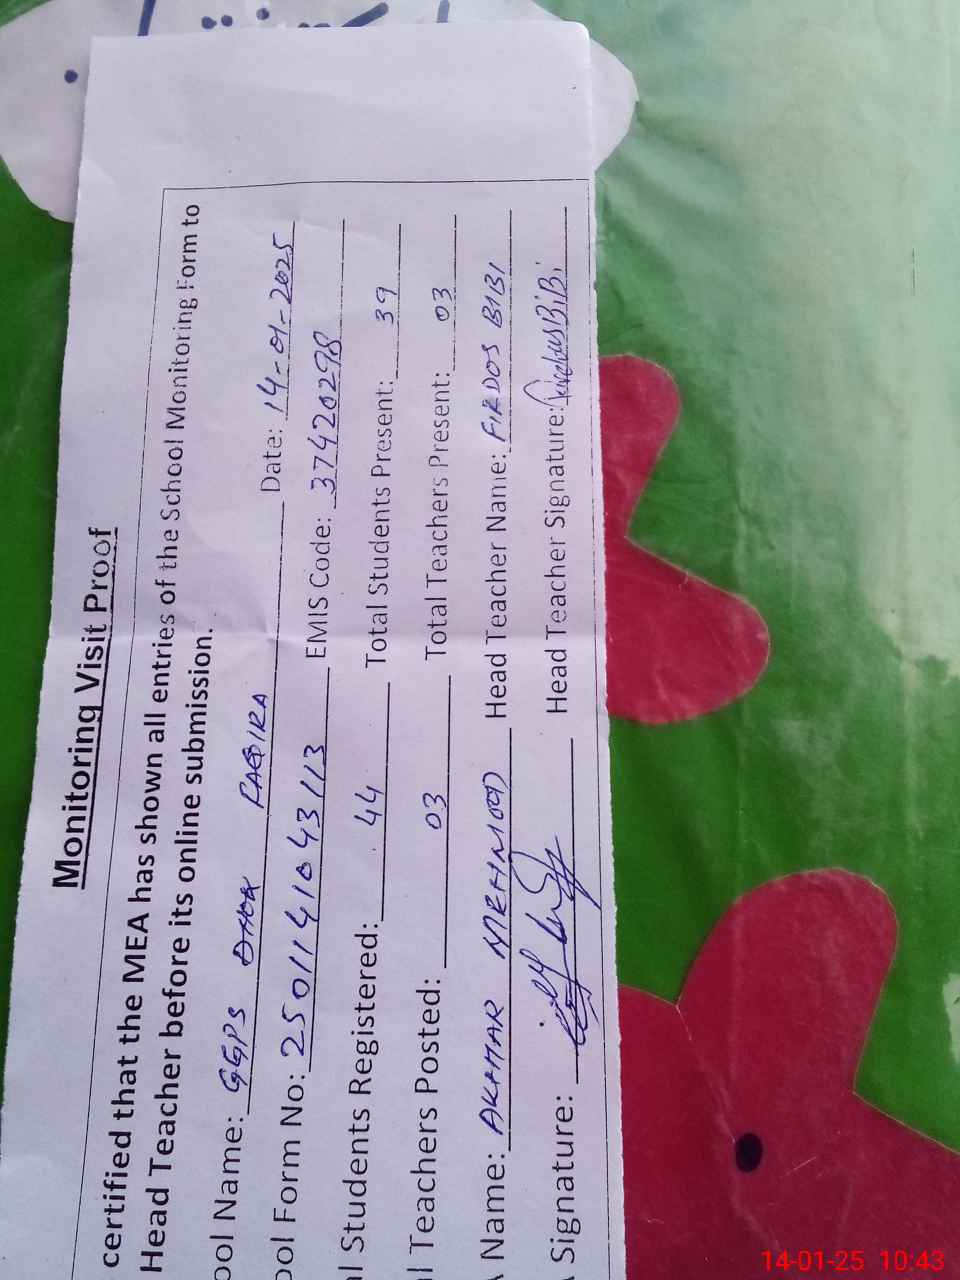 Monitoring Visit Proof
certified that the MEA has shown all entries of the School Monitoring Form to
Head Teacher before its online submission.
ool Name: GGPS DHOK FAQIRA Date: 14-01-2025
ool Form No: 2501141043113 EMIS Code: 37420298
l Students Registered: 44 Total Students Present: 39
l Teachers Posted: 03 Total Teachers Present: 03
Name: MEHMOOD Head Teacher Name: FIRDOS BIBI
Signature: Head Teacher Signature: BiBi
14-01-25 10:43